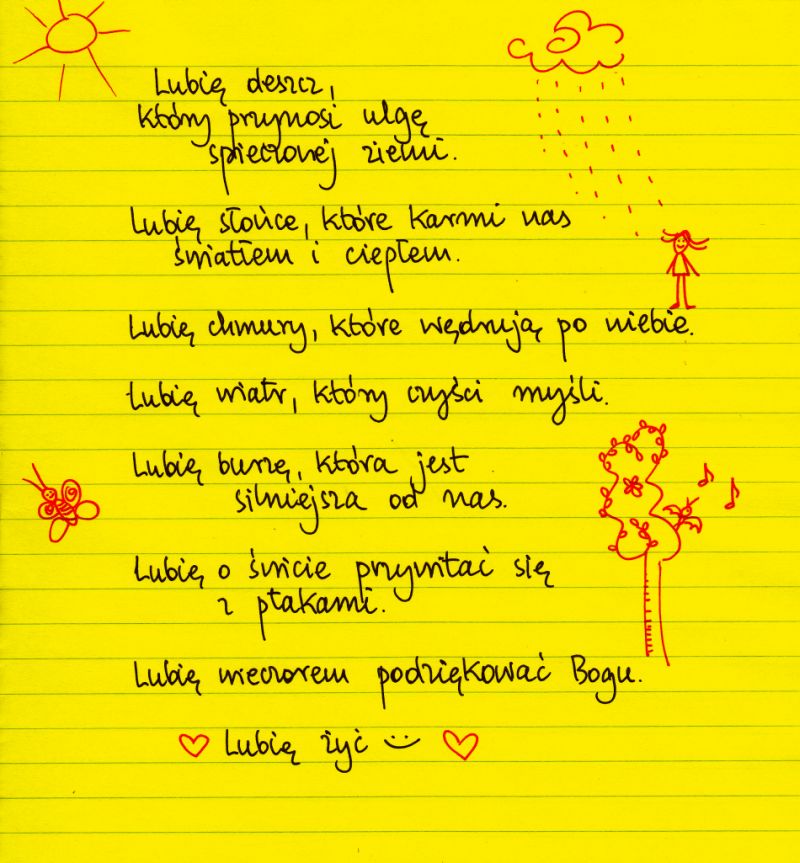 Lubię deszcz,
który przynosi ulgę
spieczonej ziemi.
Lubię słońce, które karmi nas
światłem i ciepłem.
Lubię chmury, które wędrują po niebie.
Lubię wiatr, który czyści myśli.
Lubię burzę, która jest
silniejsza od nas.
Lubię o świcie przywitać się
z ptakami.
Lubię wieczorem podziękować Bogu.
Lubię żyć